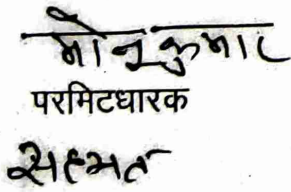 मोनू कुमार
परमिटधारक
सहमत